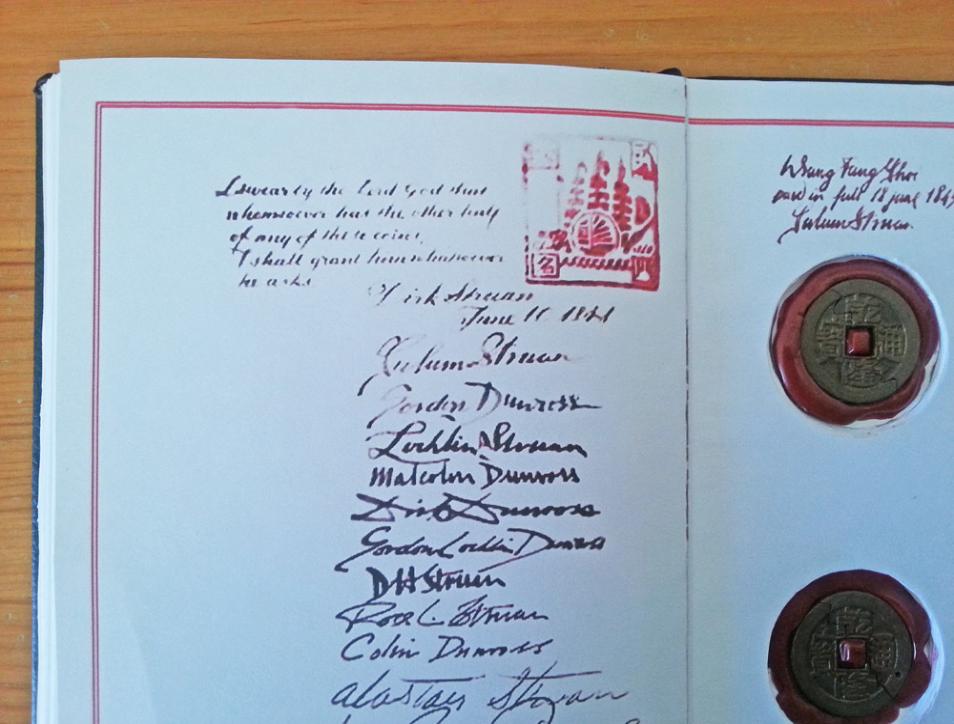 I swear by the Lord God that
whomsoever has the other half
of any of these coins,
I shall grant him whatsoever
he asks.
Dirk Struan
June 1841
Culum Struan
Gordon Dunross
Lochlin Struan
Malcolm Dunross
Dirk Dunross
Gordon Lochlin Dunross
D H Struan
Ross L. Struan
Colin Dunross
Alastair Struan
名
Wang Fang Ghoi
paid in full 18 June 184
Culum Struan